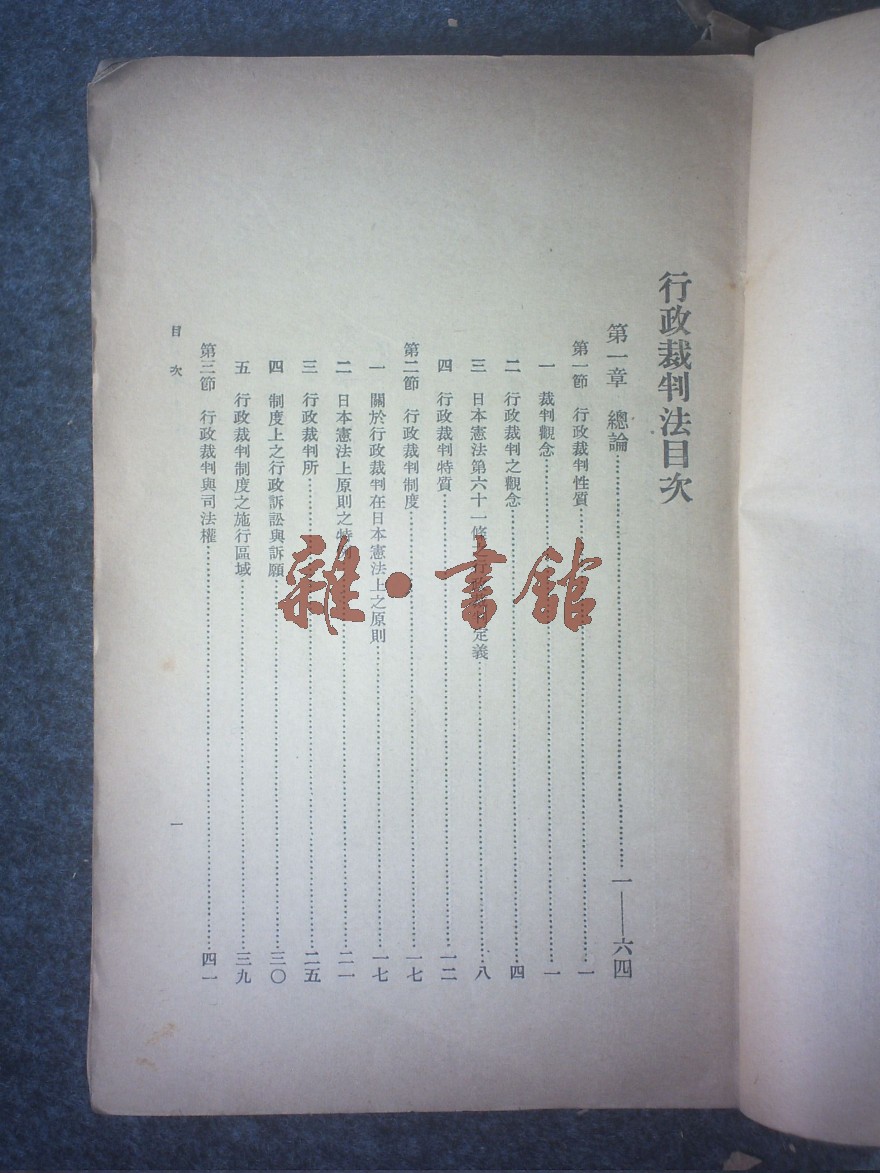 行政裁判法目次
第一章 總論……一——六四
第一節 行政裁判性質……一
一 裁判觀念……一
二 行政裁判之觀念……四
三 日本憲法第六十一條 定義……八
四 行政裁判特質……一二
第二節 行政裁判制度……一七
一 關於行政裁判在日本憲法上之原則……一七
二 日本憲法上原則之特……二一
三 行政裁判所……二五
四 制度上之行政訴訟與訴願……三〇
五 行政裁判制度之施行區域……三九
第三節 行政裁判與司法權……四一
目次
一
雜·書館